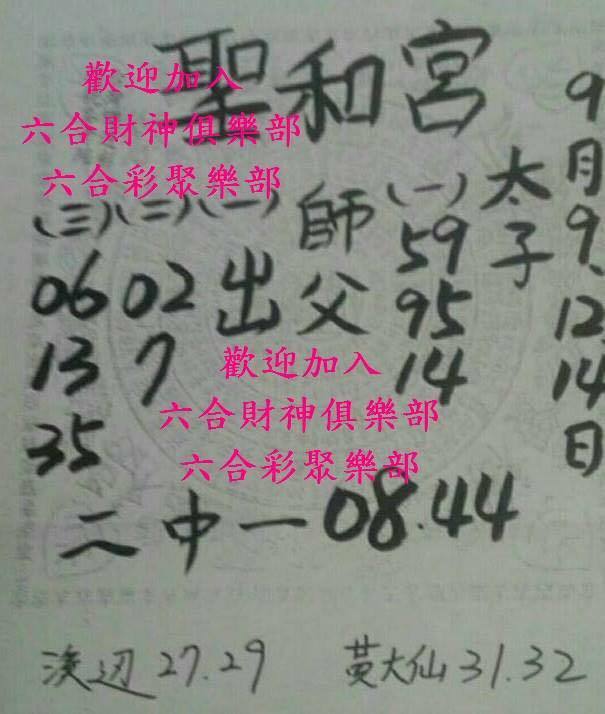 聖和宮
歡迎加入
六合財神俱樂部
六合彩聚樂部
9月9、12、14日
太子
(一)
59
95
14
師父
(一)
出
(二)
02
7
(三)
06
13
35
歡迎加入
六合財神俱樂部
六合彩聚樂部
二中一08.44
溪辺27.29
黃大仙31.32